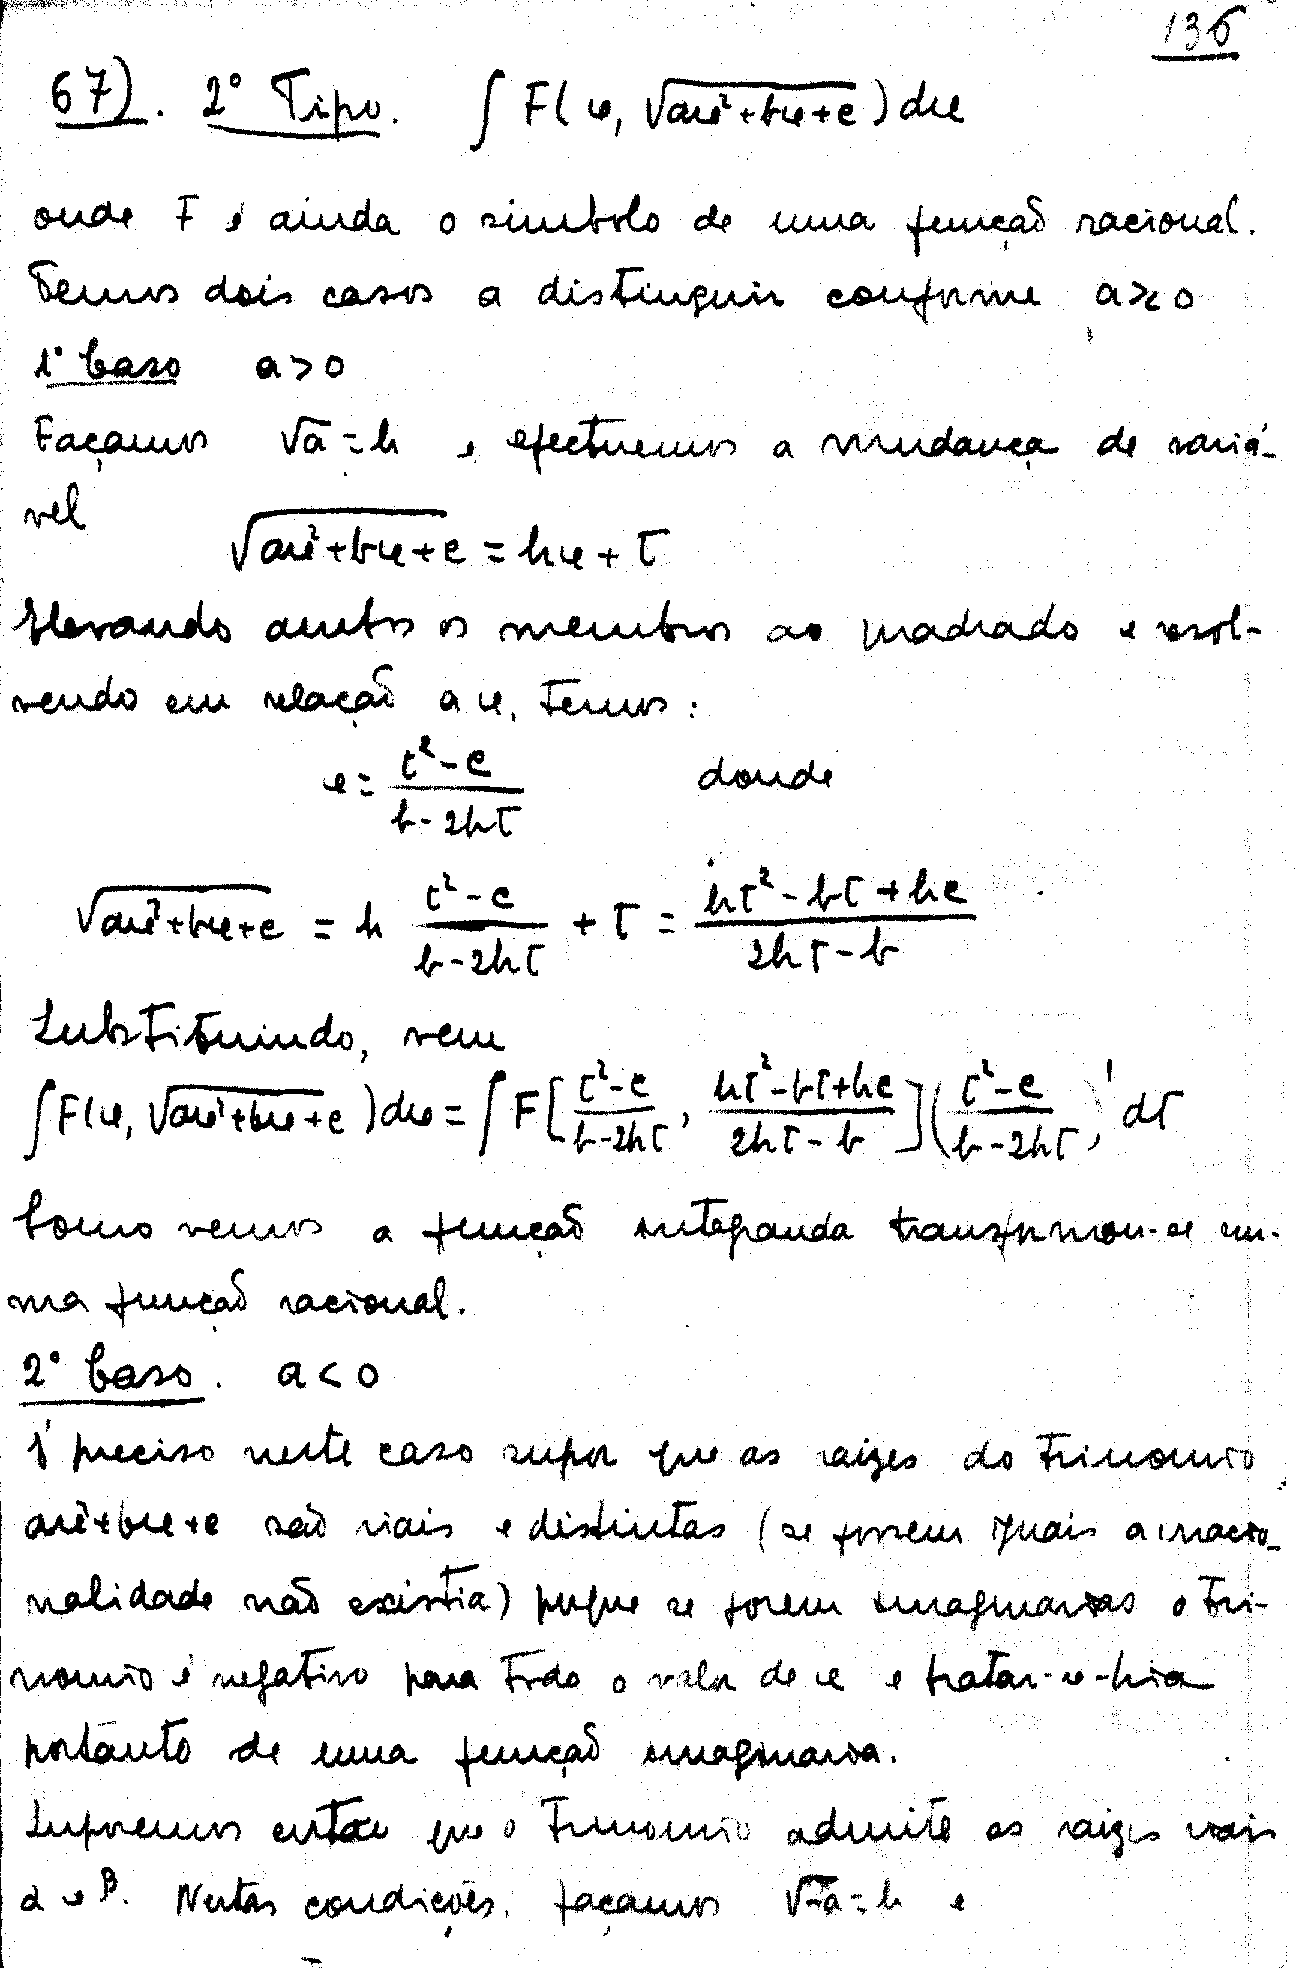 136
67). 2º Tipo. ∫ F(x, √ax²+bx+c) dx
onde F é ainda o simbolo de uma função racional.
Temos dois casos a distinguir conforme a>< 0
1º Caso a>0
Façamos √a = h e efectuemos a mudança de variá-
vel
√ax²+bx+c = hx + t
Elevando ambos os membros ao quadrado e resol-
vendo em relação a x, temos:
x = (t²-c)/(b-2ht) donde
√ax²+bx+c = h (t²-c)/(b-2ht) + t = (ht²-bt+hc)/(2ht-b)
Substituindo, vem
∫F(x, √ax²+bx+c)dx = ∫F[(t²-c)/(b-2ht), (ht²-bt+hc)/(2ht-b)]((t²-c)/(b-2ht))' dt
Como vemos a função integranda transformou-se nu-
ma função racional.
2º Caso. a<0
É preciso neste caso supor que as raizes do trinomio
ax²+bx+c são riais e distintas (se fossem iguais a irracio-
nalidade não existia) porque se forem imaginarias o tri-
nomio é negativo para todo o valor de x e tratar-se-hia
portanto de uma função imaginaria.
Suporemos então que o trinomio admite as raizes riais
α e β. Nestas condições, façamos √-a = h e